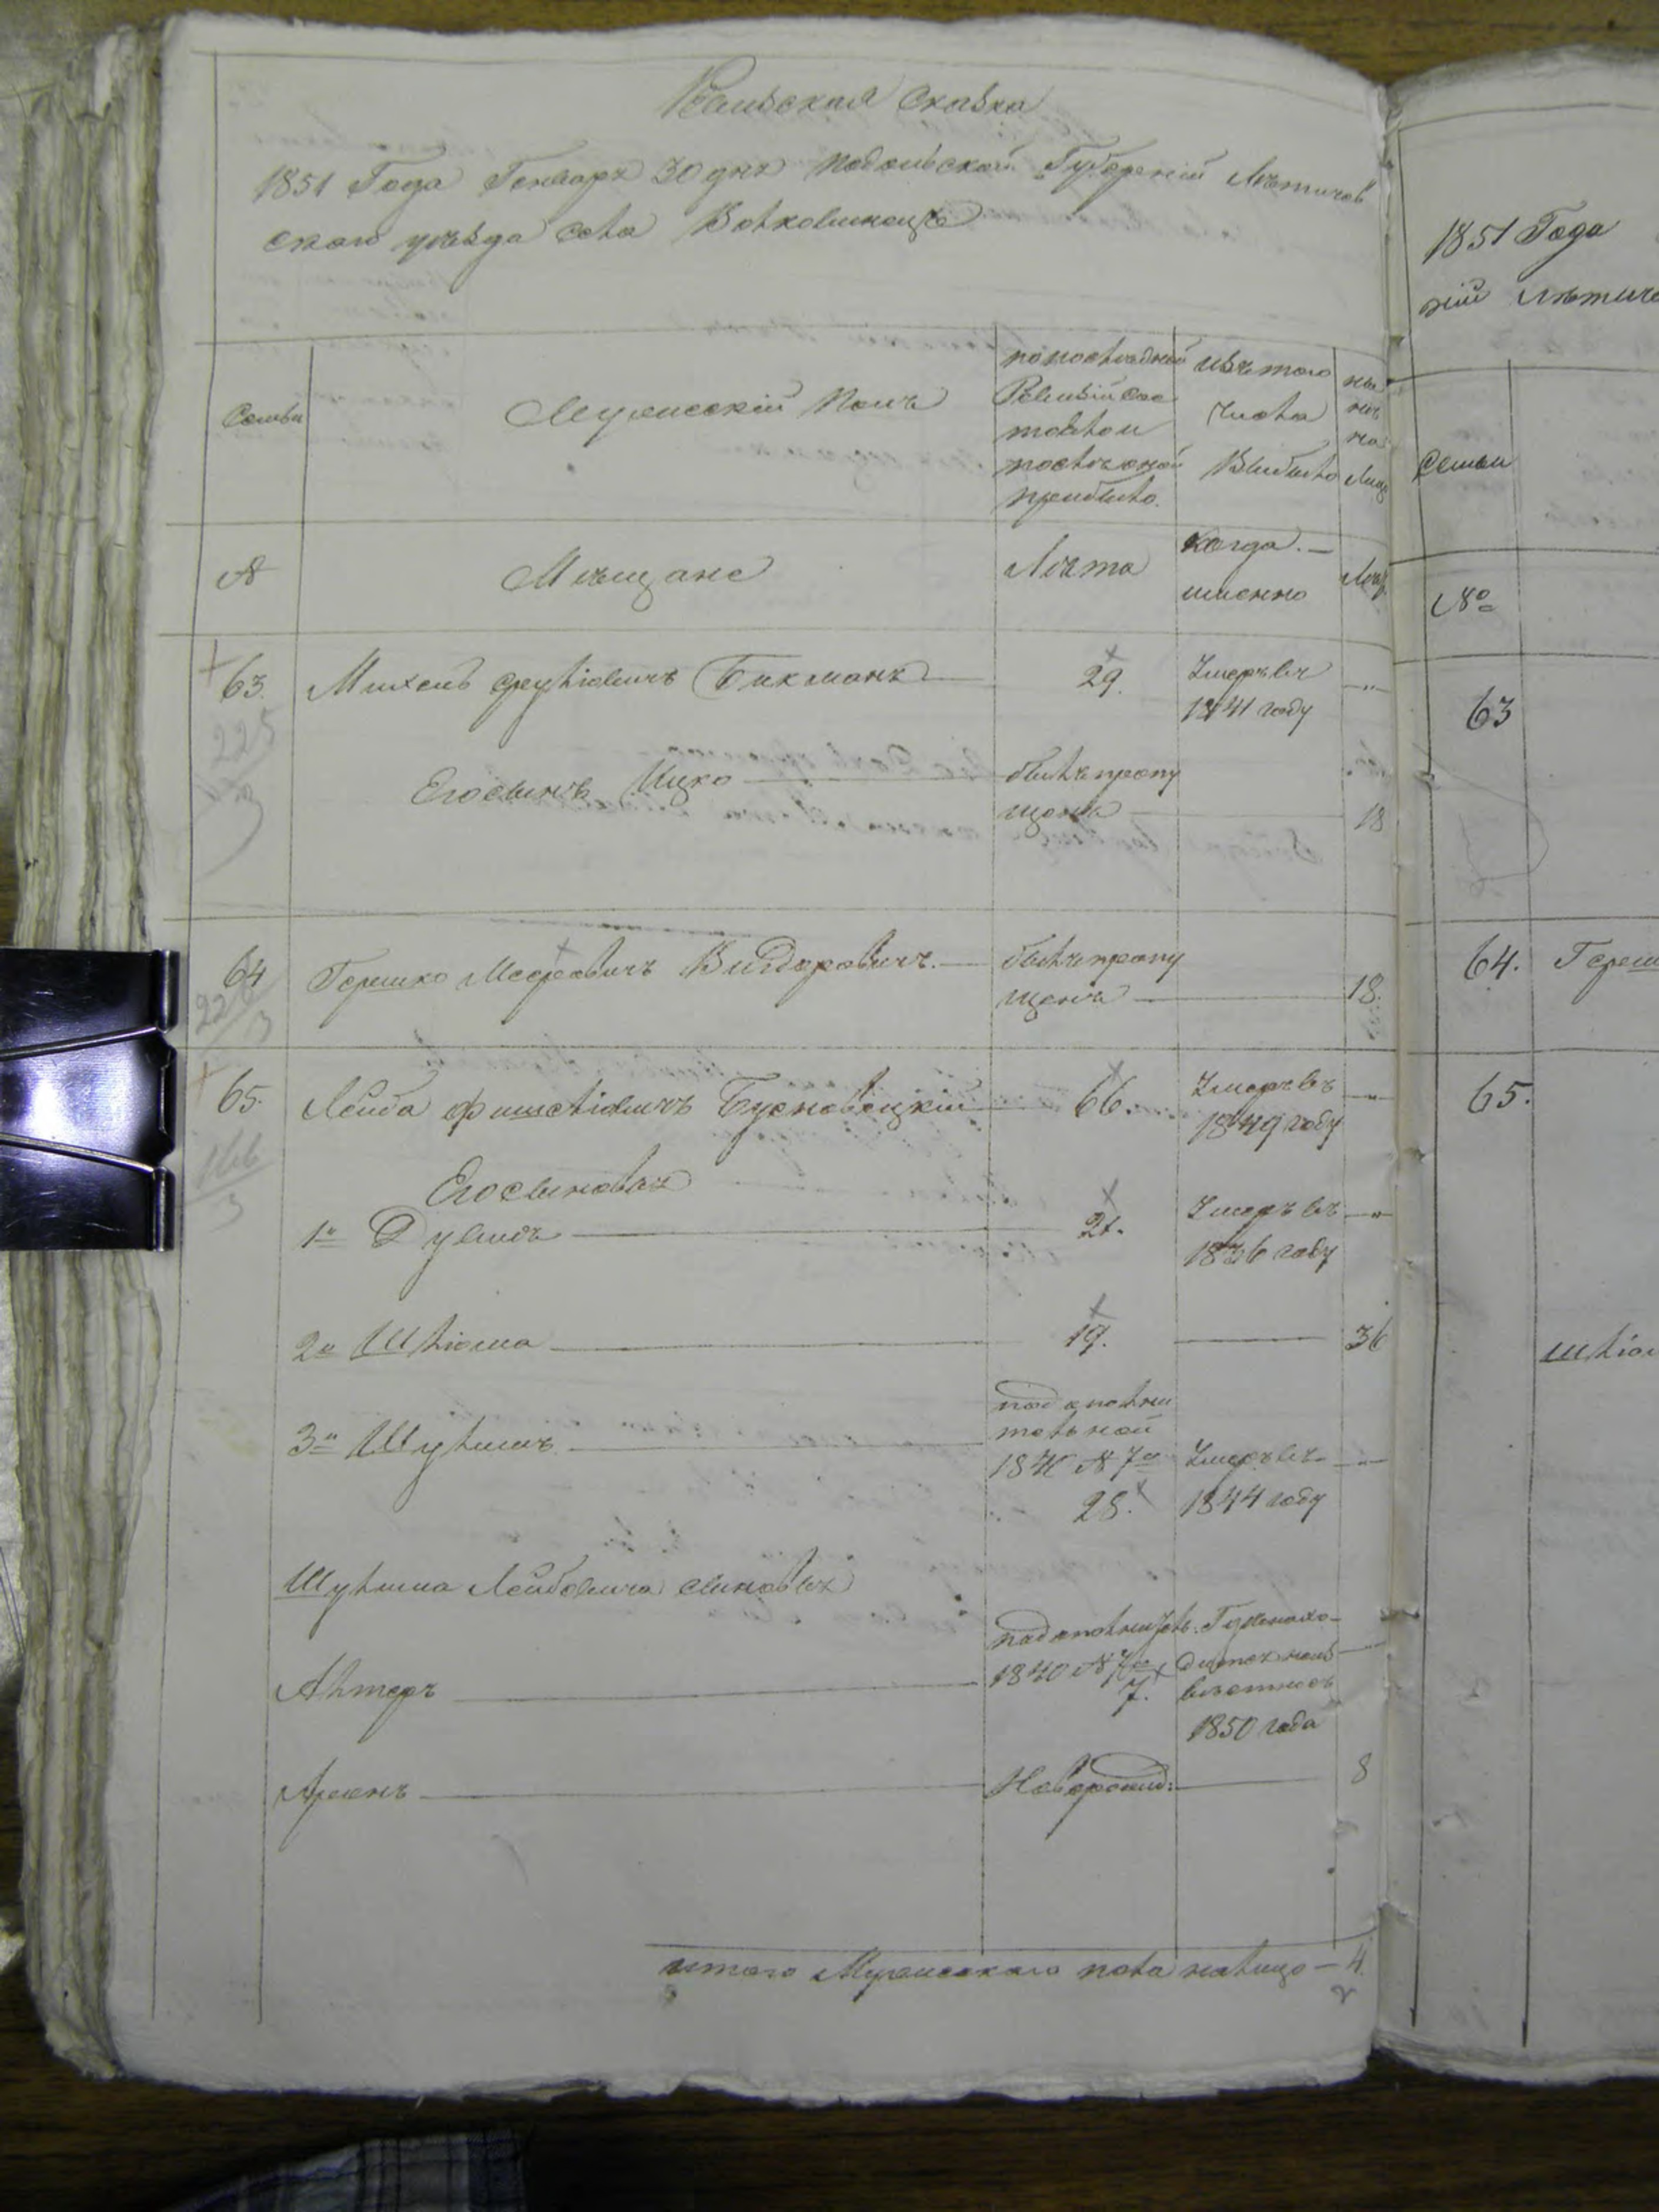 Ревизская Сказка
1851 Года Генваря 30 дня Подольской Губерніи Летичев
ского уезда села Волковинецъ
Семьи
Мужескій Полъ
по последней
Ревизіи сос
тояло и
после оной
прибыло.
изъ того
числа
Выбыло
ны
не
на
Лицо
№
Мещане
Лета
Когда
именно
Лета
63.
Михель Сруліовичъ Бикманъ
29.
Умеръ въ
1841 году
—"—
225
3
Его сынъ Ицко
былъ пропу
щенъ
18
64
Гершко Мееровичъ Видоровичъ.
былъ пропу
щенъ
18.
226
3
65.
Лейба Фишеліовичъ Бусновецкій
66.
Умеръ въ
1849 году
—"—
166
3
Его сыновья
1й Дувидъ
21.
Умеръ въ
1836 году
—"—
2й Шліома
19.
36
3й Шулимъ
по дополни
тельной
1840 № 7й
28.
Умеръ въ
1844 году
—"—
Шулима Лейбовича сыновья
Алтеръ
по дополнитель.
1840 № 7й
7.
1850 года
Аронъ
Новорожд:
8
итого Мужескаго пола налицо — 4.
1851 Года
ніи Летиче
Семьи
№
63
64.
Герш
65.
Шліо